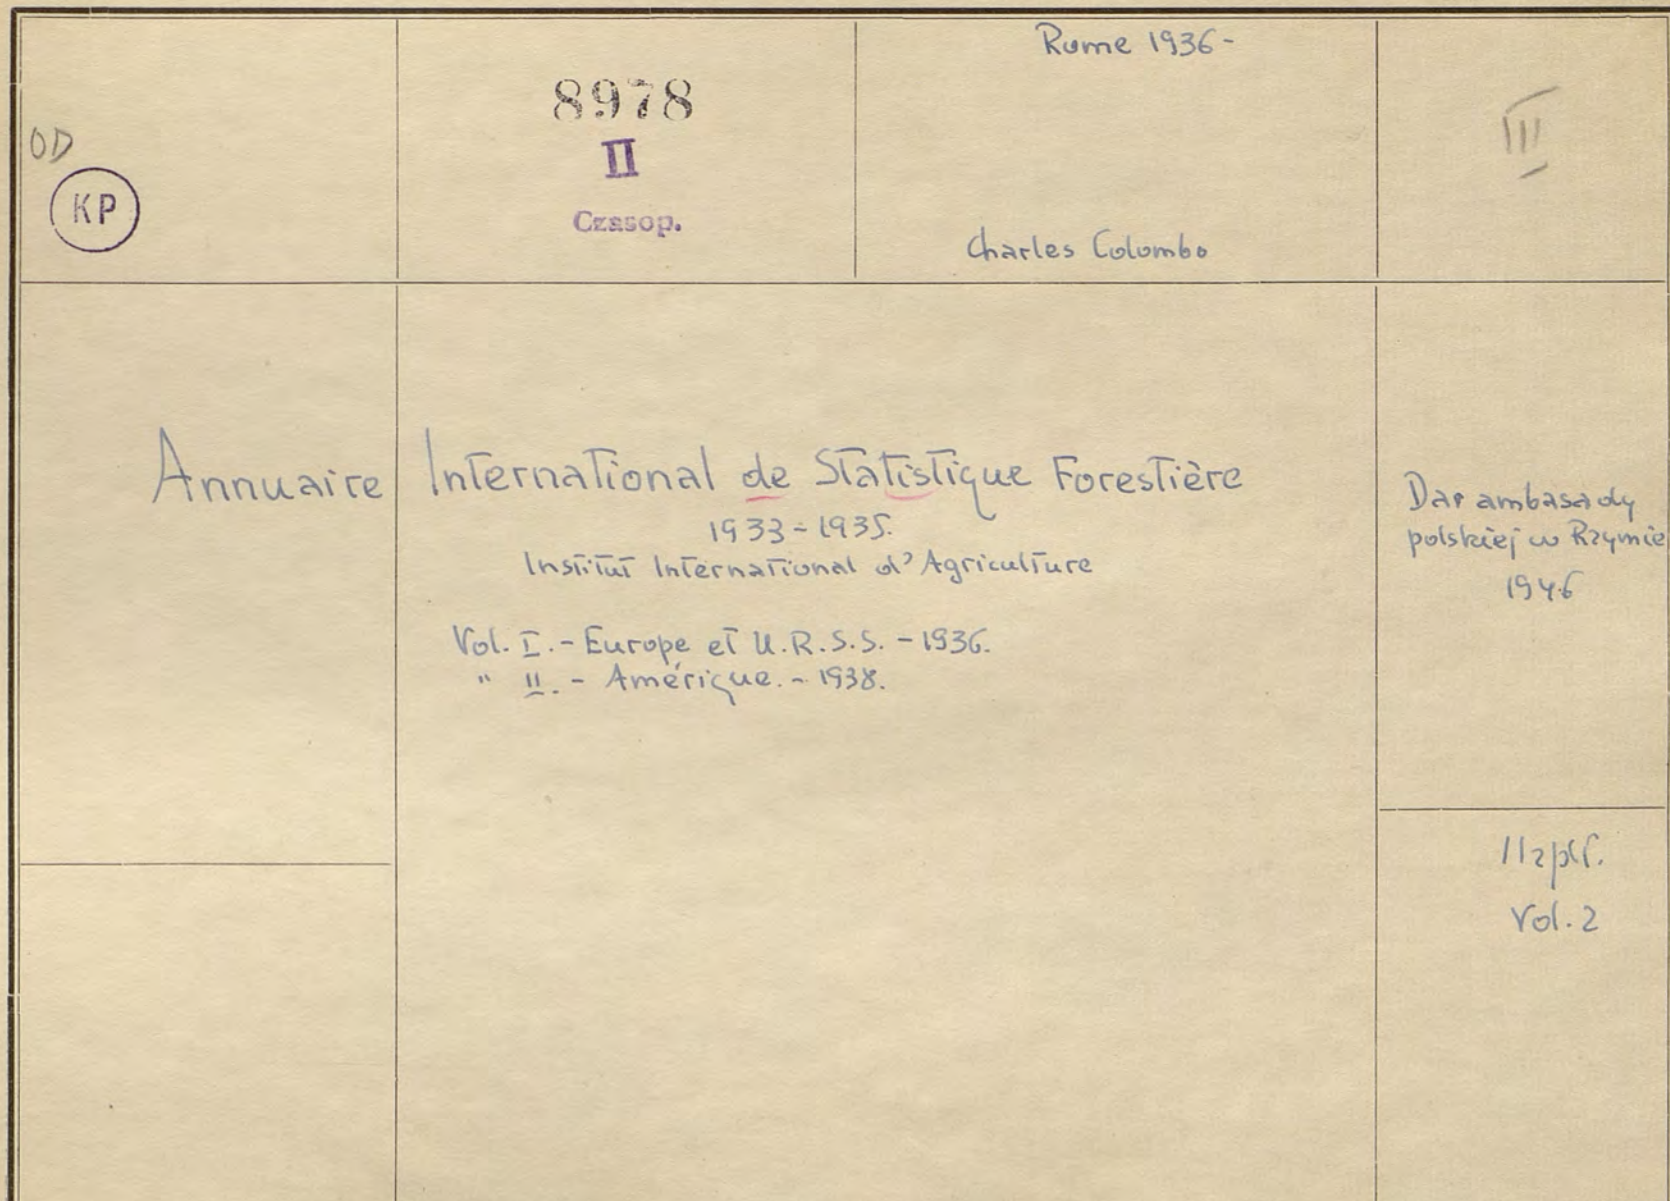 Rome 1936-
8978
II
Czasop.
OD
KP
III
Charles Colombo
Annuaire International de Statistique Forestière
1933-1935.
Institut International d'Agriculture
Vol. I. - Europe et U.R.S.S. - 1936.
" II. - Amérique. - 1938.
Dar ambasady
polskiej w Rzymie
1946
Vol. 2